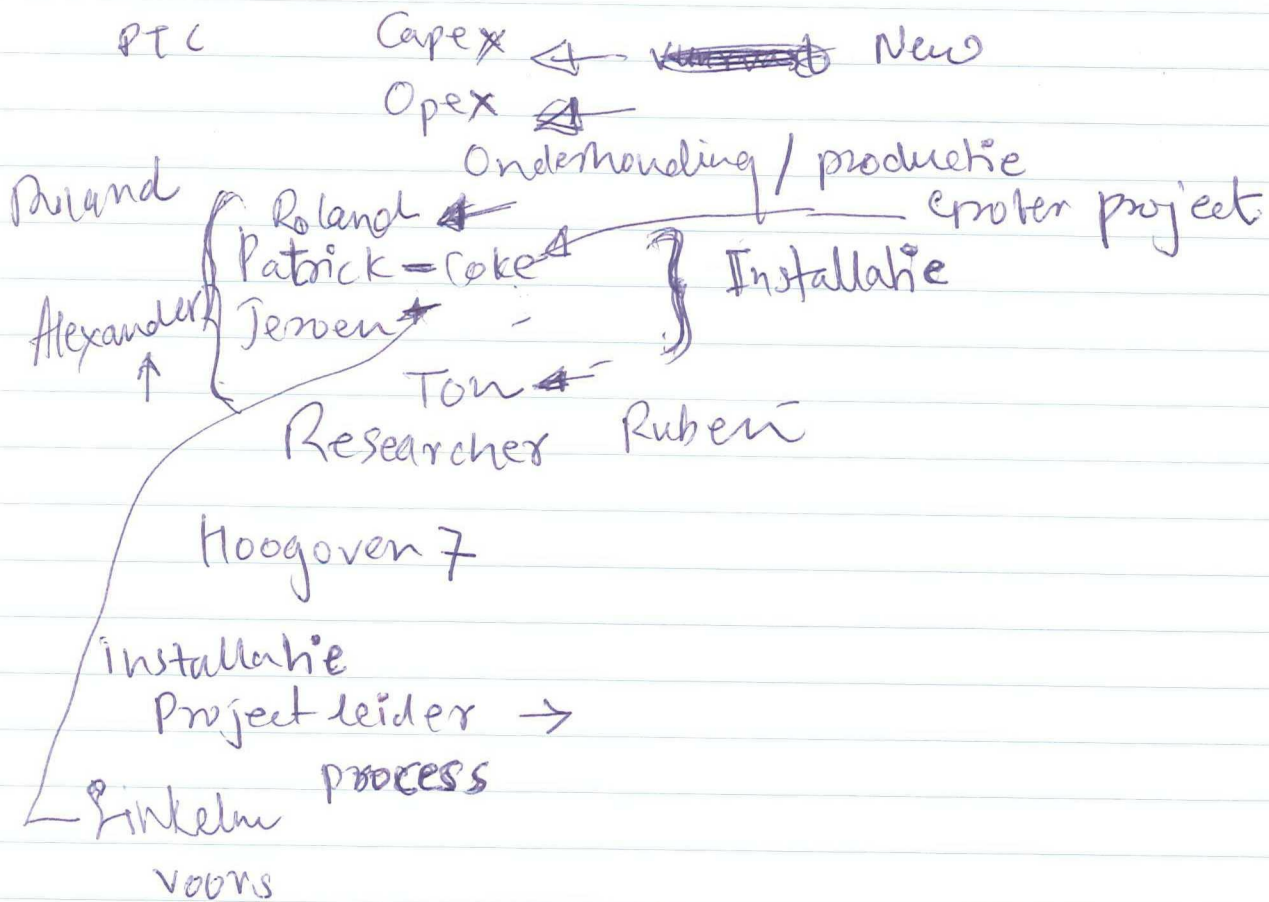 PTC Capex New
Opex
Onderhouding / productie
Roland groter project
Patrick = Coke Installatie
Alexander Jeroen
Ton
Researcher Ruben
Hoogoven 7
installatie
Project leider →
process
voors